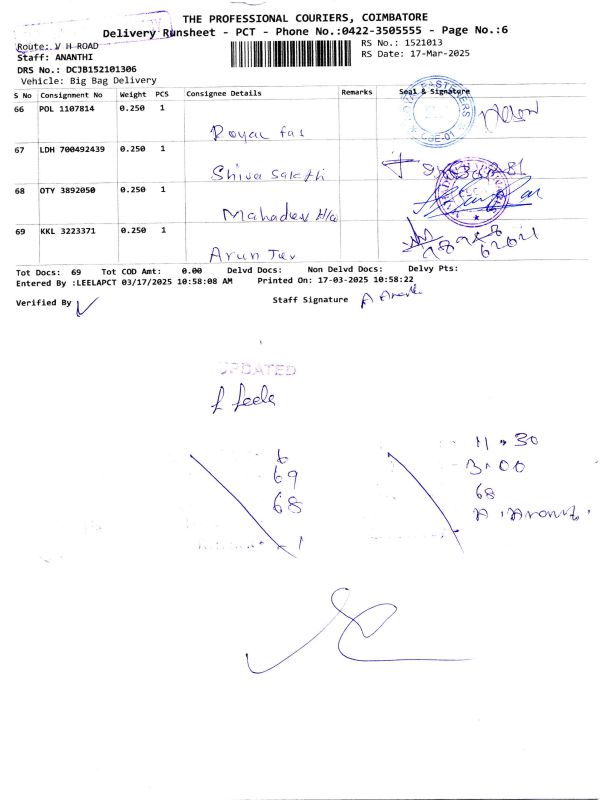 THE PROFESSIONAL COURIERS, COIMBATORE
Delivery Runsheet - PCT - Phone No.:0422-3505555 - Page No.:6
Route: V H ROAD
RS No.: 1521013
Staff: ANANTHI
RS Date: 17-Mar-2025
DRS No.: DCJB152101306
Vehicle: Big Bag Delivery
S No Consignment No Weight PCS Consignee Details Remarks Seal & Signature
66 POL 1107814 0.250 1
Royal fas
CBE-01
67 LDH 700492439 0.250 1
Shiva Sakthi
68 OTY 3892050 0.250 1
Mahadev H/w
69 KKL 3223371 0.250 1
Arun Tex
Tot Docs: 69 Tot COD Amt: 0.00 Delvd Docs: Non Delvd Docs: Delvy Pts:
Entered By :LEELAPCT 03/17/2025 10:58:08 AM Printed On: 17-03-2025 10:58:22
Verified By
Staff Signature A Ananthi
UPDATED
L Leela
11.30
6
3.00
69
68
68
A. Ananthi
1